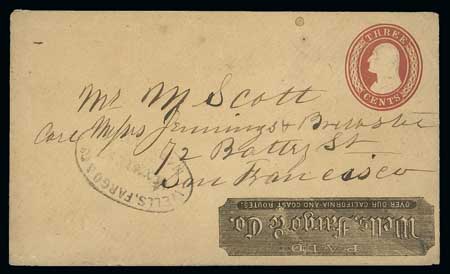 THREE
CENTS
Mr M Scott
Care Messrs Jennings & Brewster
72 Battery St
San Francisco
WELLS, FARGO & CO
PAID
Wells, Fargo & Co.
OVER OUR CALIFORNIA AND COAST ROUTES.